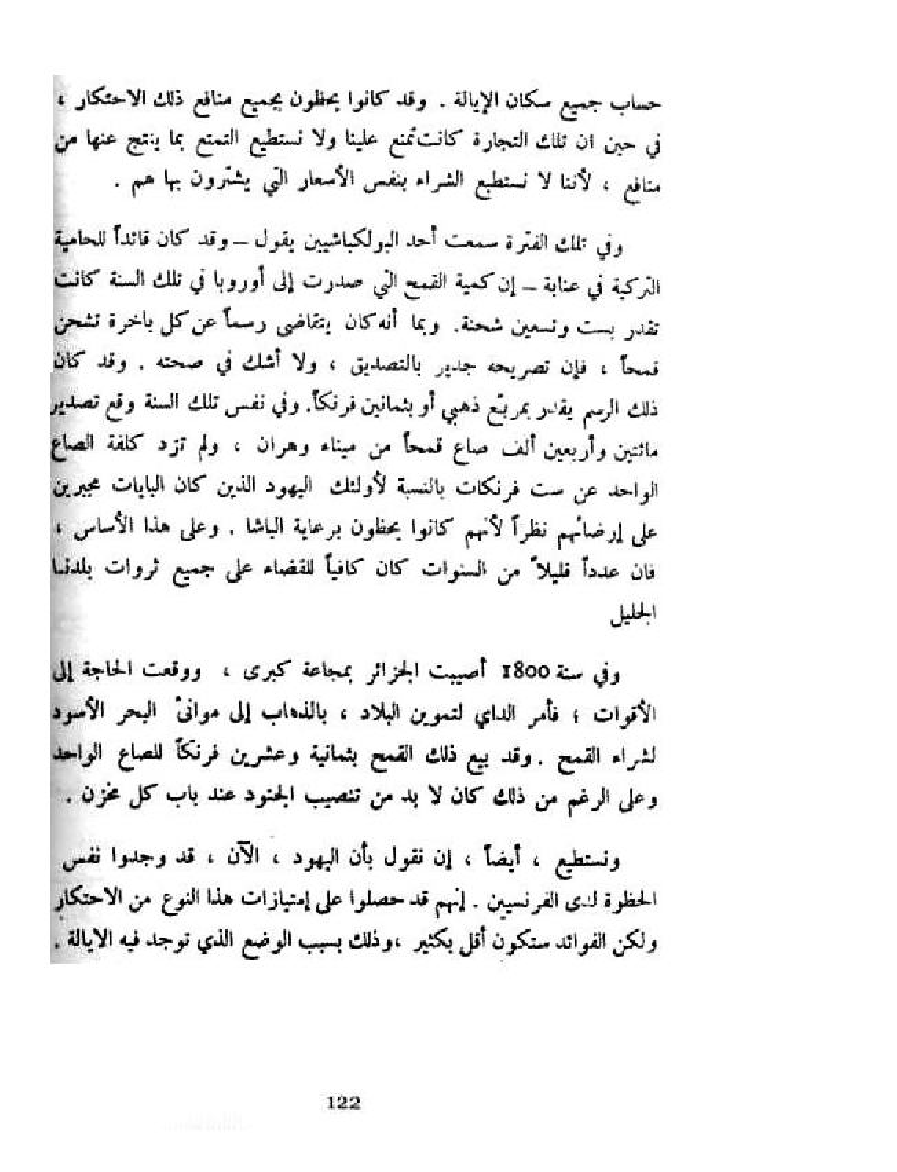 حساب جميع سكان الإيالة . وقد كانوا يحظون بجميع منافع ذلك الاحتكار ،
في حين ان تلك التجارة كانت تُمنع علينا ولا نستطيع التمتع بما ينتج عنها من
منافع ، لأننا لا نستطيع الشراء بنفس الأسعار التي يشترون بها هم .
وفي تلك الفترة سمعت أحد البولكباشيين يقول – وقد كان قائداً للحامية
التركية في عنابة – إن كمية القمح التي صدرت إلى أوروبا في تلك السنة كانت
تقدر بست وتسعين شحنة. وبما أنه كان يتقاضى رسماً عن كل باخرة تشحن
قمحاً ، فإن تصريحه جدير بالتصديق ، ولا أشك في صحته . وقد كان
ذلك الرسم يقدر بمربّع ذهبي أو بثمانين فرنكاً. وفي نفس تلك السنة وقع تصدير
مائتين وأربعين ألف صاع قمحاً من ميناء وهران ، ولم تزد كلفة الصاع
الواحد عن ست فرنكات بالنسبة لأولئك اليهود الذين كان البايات مجبرين
على إرضائهم نظراً لأنهم كانوا يحظون برعاية الباشا . وعلى هذا الأساس ،
فان عدداً قليلاً من السنوات كان كافياً للقضاء على جميع ثروات بلدنا
الجليل
وفي سنة 1800 أصيبت الجزائر بمجاعة كبرى ، ووقعت الحاجة إلى
الأقوات ؛ فأمر الداي لتموين البلاد ، بالذهاب إلى موانئ البحر الأسود
لشراء القمح . وقد بيع ذلك القمح بثمانية وعشرين فرنكاً للصاع الواحد
وعلى الرغم من ذلك كان لا بد من تنصيب الجنود عند باب كل مخزن .
ونستطيع ، أيضاً ، إن نقول بأن اليهود ، الآن ، قد وجدوا نفس
الحظوة لدى الفرنسيين . إنهم قد حصلوا على إمتيازات هذا النوع من الاحتكار
ولكن الفوائد ستكون أقل بكثير ،وذلك بسبب الوضع الذي توجد فيه الايالة .
122